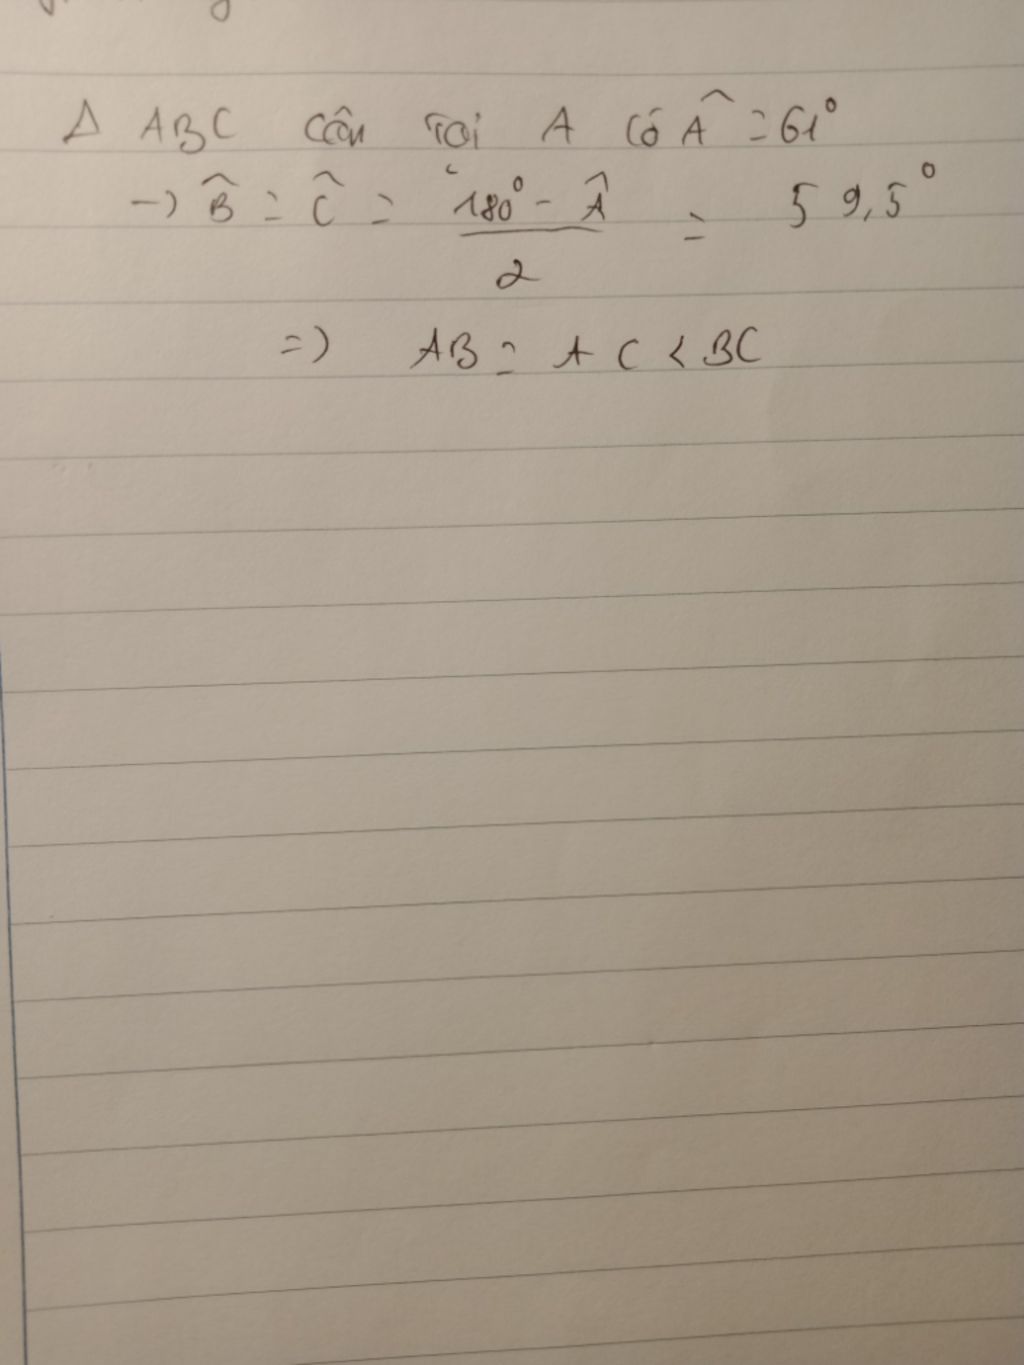 Δ ABC cân tại A có Â = 61°
→ B̂ = Ĉ = (180° - Â) / 2 = 59,5°
=> AB = AC < BC